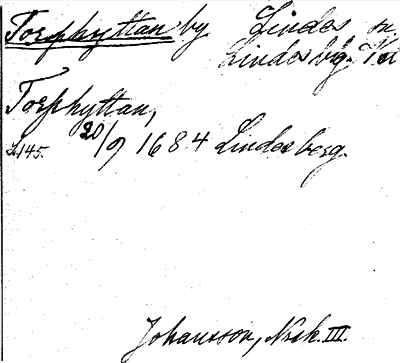 Torphyttan by Lindes sn
Lindesbg. Tsl
Torphyttan,
S. 145. 20/9 1684 Lindesberg.
Johansson, Nrsk. III.